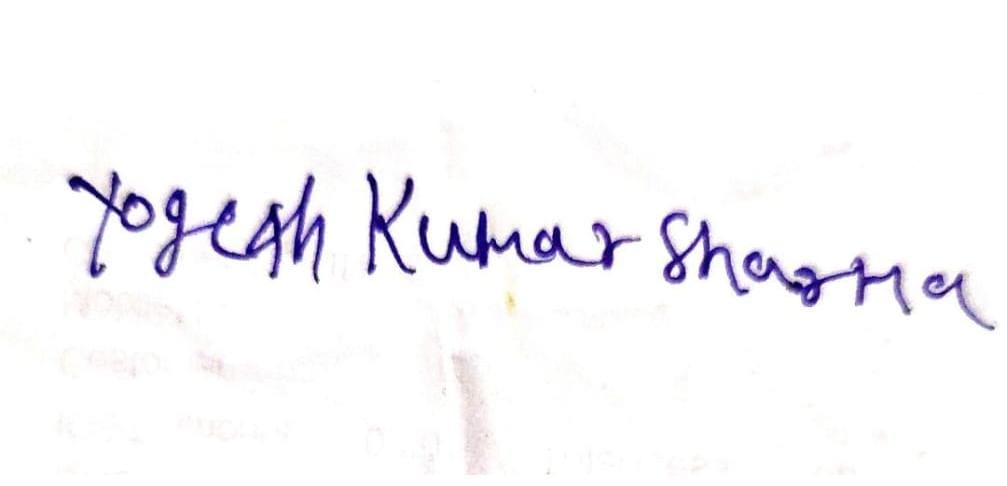 Yogesh Kumar Sharma